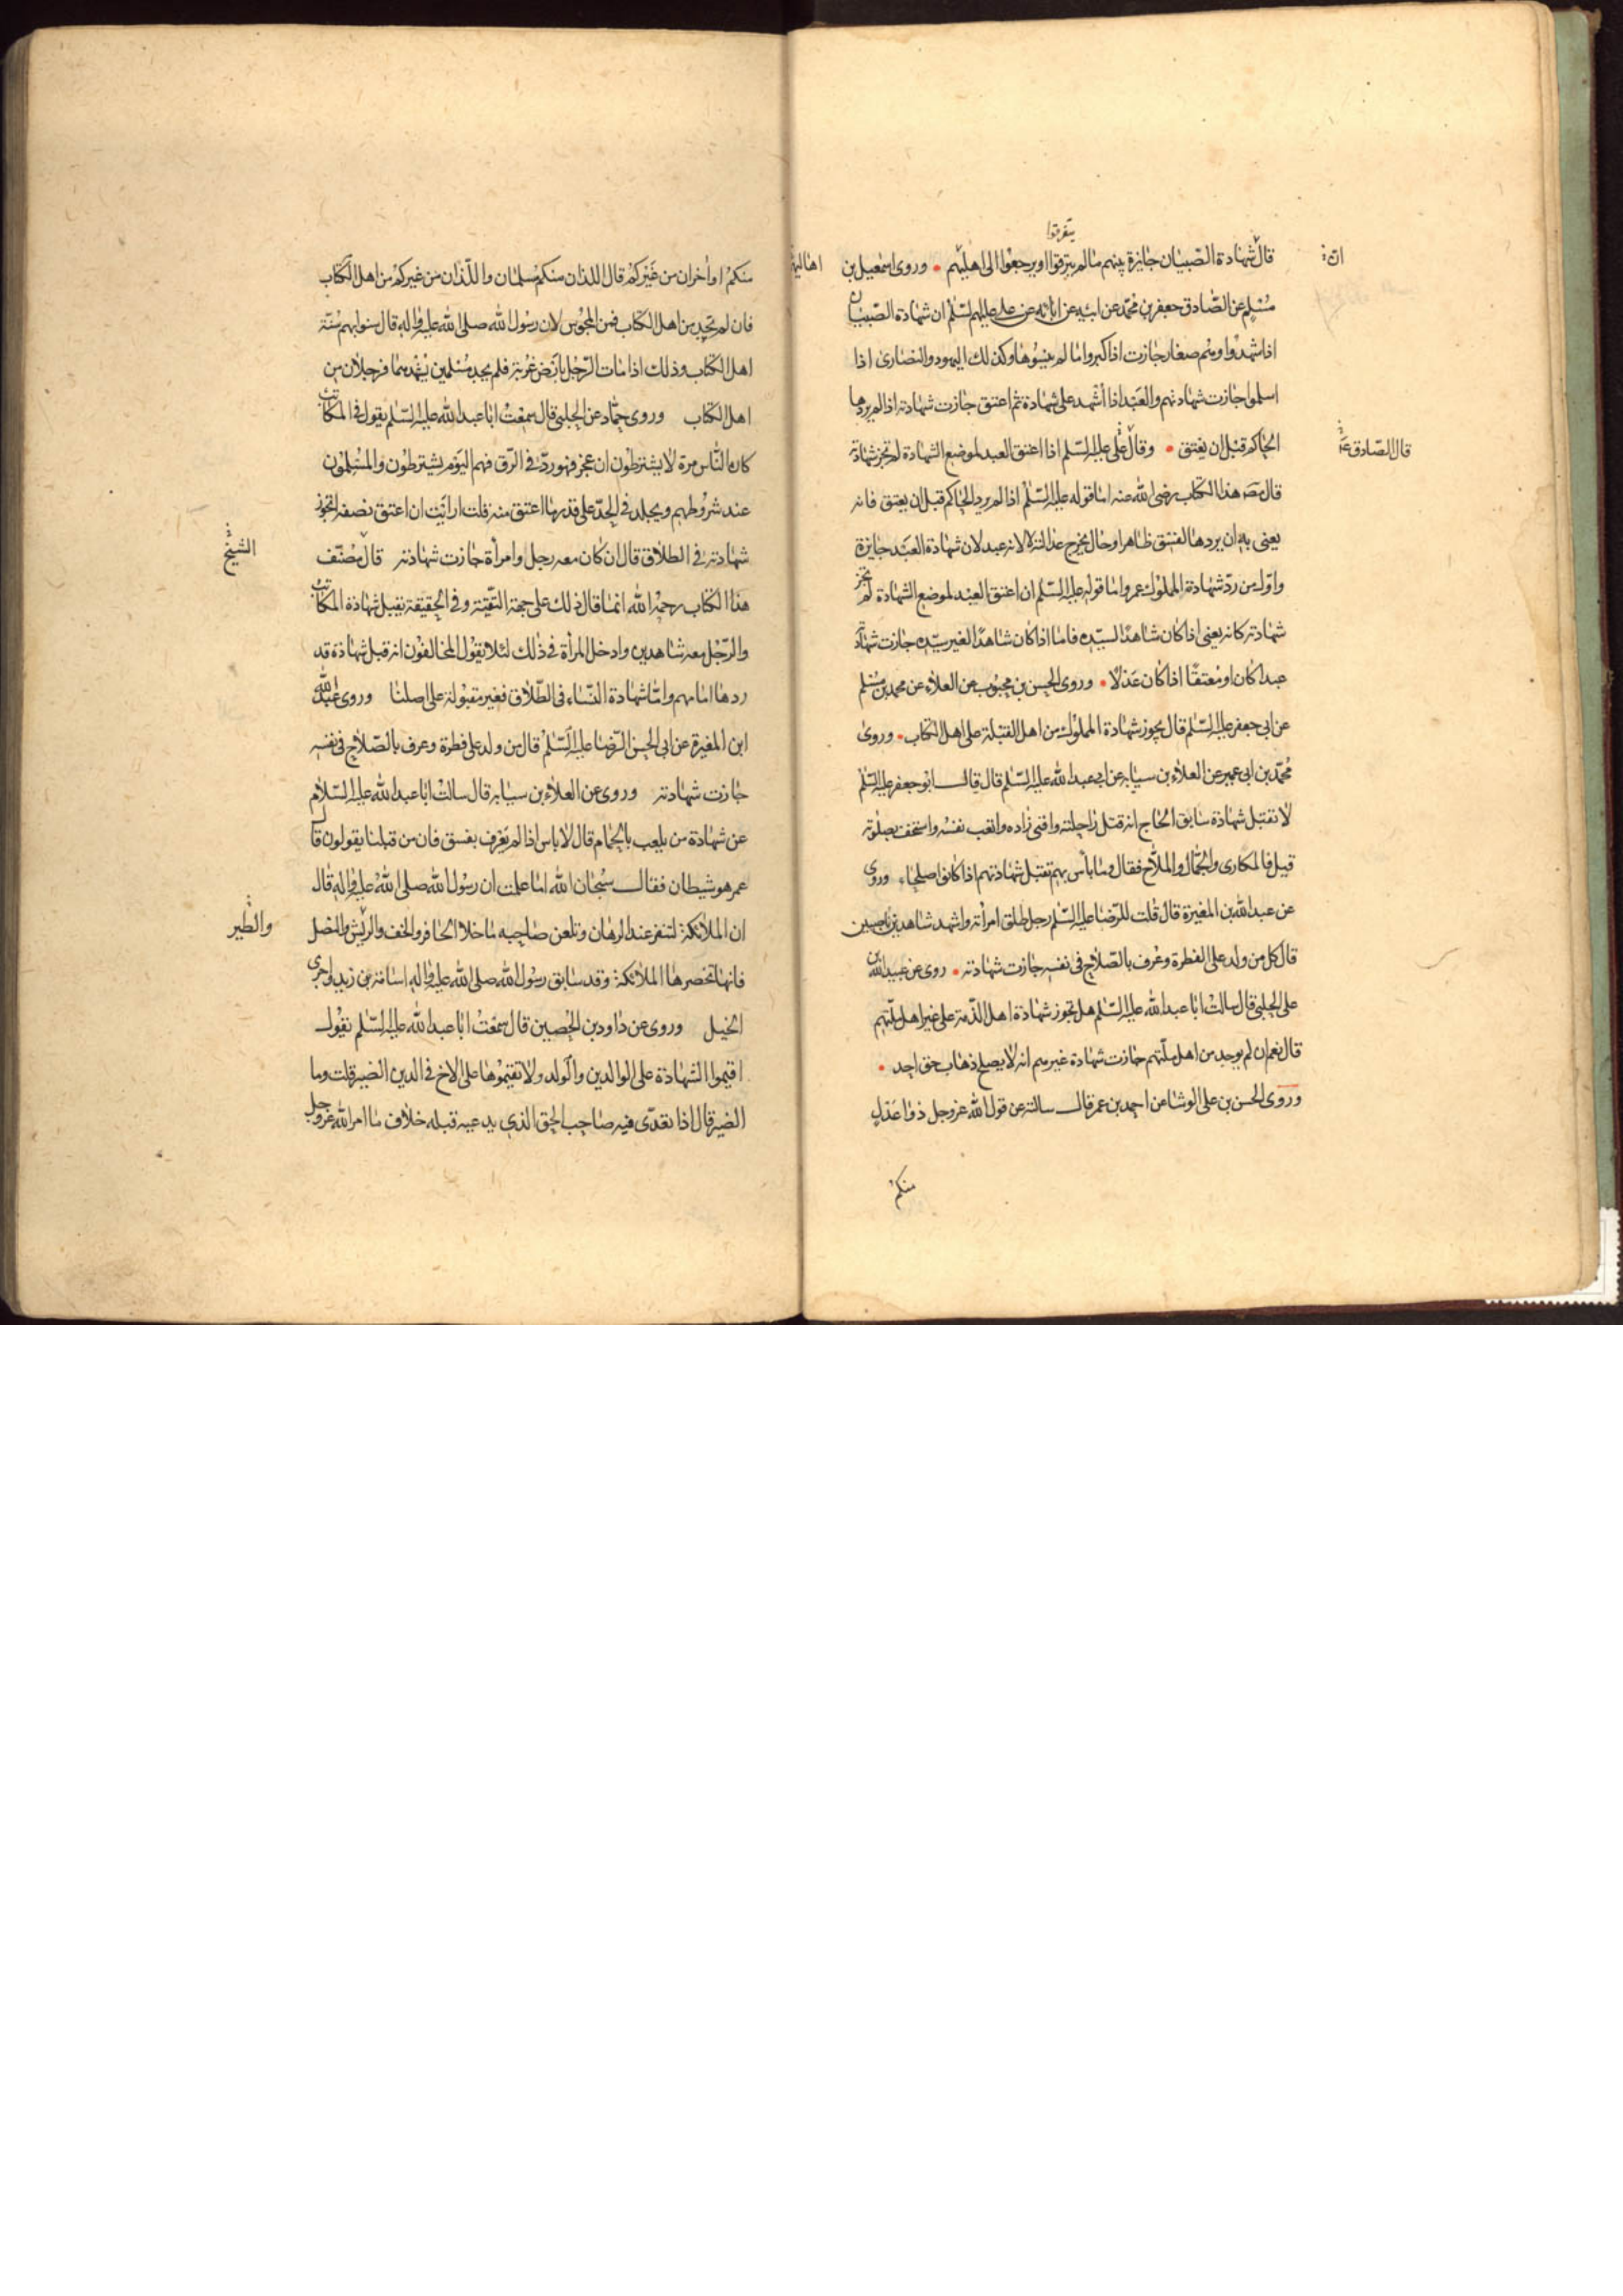 يتفرقوا
انّ
قال شهادة الصبيان جايزة بينهم ما لم يتفرقوا او يرجعوا الى اهليهم وروى اسمعيل بن
مسلم عن الصّادق جعفر بن محمّد عن ابيه عن ابائه عن علي عليهم السّلم ان شهادة الصّبيان
اذا شهدوا وهم صغار جازت اذا كبروا ما لم ينسوها وكذلك اليهود والنصارى اذا
اسلموا جازت شهادتهم والعبد اذا أشهد على شهادة ثم اعتق جازت شهادته اذا لم يردها
الحاكم قبل ان يعتق وقال علي عليه السّلم اذا اعتق العبد لموضع الشهادة لم تجز شهادته
قال الصّادق ع
قال مص هذا الكتاب رضي الله عنه اما قوله عليه السّلم اذا لم يردها الحاكم قبل ان يعتق فانه
يعنى به ان يردها لفسق ظاهر او حال يخرج عدالته لا لانه عبد لان شهادة العبد جايزة
واوّل من ردّ شهادة المملوك عمر واما قوله عليه السّلم ان اعتق العبد لموضع الشهادة لم تجز
شهادته كانه يعنى اذا كان شاهدا لسيّده فاما اذا كان شاهدا لغير سيّده جازت شهادته
عبدا كان او معتقًا اذا كان عدلًا وروى الحسن بن محبوب عن العلاء عن محمد بن مسلم
عن ابي جعفر عليه السّلم قال يجوز شهادة المملوك من اهل القبلة على اهل الكتاب وروى
محمّد بن ابى عمير عن العلاء بن سيابه عن ابي عبد الله عليه السّلم قال قال ابو جعفر عليه السّلم
لا تقبل شهادة سابق الحاج انه قتل راحلته وافنى زاده واتعب نفسه واستخف بصلوته
قيل فالمكارى والجمّال والملّاح فقال وما بأس بهم تقبل شهادتهم اذا كانوا صلحاء وروى
عن عبد الله بن المغيرة قال قلت للرّضا عليه السّلم رجل طلق امرأته واشهد شاهدين ناصبيين
قال كل من ولد على الفطرة وعُرف بالصّلاح فى نفسه جازت شهادته روى عن عبيد الله بن
على الحلبى قال سالت ابا عبد الله عليه السّلم هل تجوز شهادة اهل الذّمة على غير اهل ملّتهم
قال نعم ان لم يوجد من اهل ملّتهم جازت شهادة غيرهم انه لا يصلح ذهاب حق احد
وروى الحسن بن على الوشا عن احمد بن عمر قال سالته عن قول الله عز وجل ذوا عدل
منكم
منكم او اخران من غيركم قال اللذان منكم مسلمان واللّذان من غيركم من اهل الكتاب
فان لم تجد من اهل الكتاب فمن المجوس لان رسول الله صلى الله عليه واله قال سنوا بهم سنّة
اهل الكتاب وذلك اذا مات الرّجل بأرض غربة فلم يجد مسلمين يشهدهما فرجلان من
اهل الكتاب وروى حمّاد عن الحلبى قال سمعت ابا عبد الله عليه السّلم يقول فى المكاتب
كان النّاس مرة لا يشترطون ان عجز فهو ردّ فى الرّق فهم اليوم يشترطون والمسلمون
عند شروطهم ويجلد فى الحدّ على قدر ما اعتق منه قلت ارايت ان اعتق نصفه اتجوز
شهادته فى الطلاق قال ان كان معه رجل وامرأة جازت شهادته قال مصنّف
الشيخ
هذا الكتاب رحمه الله انما قال ذلك على جهة التقيّة وفى الحقيقة تقبل شهادة المكاتب
والرّجل معه شاهدين وادخل المرأة فى ذلك لئلا يقول المخالفون انه قبل شهادة قد
ردها امامهم وامّا شهادة النّساء فى الطّلاق فغير مقبولة على اصلنا وروى عبد الله
ابن المغيرة عن ابى الحسن الرّضا عليه السّلم قال من ولد على فطرة وعرف بالصّلاح فى نفسه
جازت شهادته وروى عن العلاء بن سيابه قال سالت ابا عبد الله عليه السّلام
عن شهادة من يلعب بالحمام قال لا باس اذا لم يعرف بفسق فان من قبلنا يقولون قال
عمر هو شيطان فقال سبحان الله اما علمت ان رسول الله صلى الله عليه واله قال
ان الملائكة لتنفر عند الرهان وتلعن صاحبه ما خلا الحافر والخف والرّيش والنصل
والطير
فانها تحضرها الملائكة وقد سابق رسول الله صلى الله عليه واله اسامة بن زيد واجرى
الخيل وروى عن داود بن الحصين قال سمعت ابا عبد الله عليه السّلم يقول
اقيموا الشهادة على الوالدين والولد ولا تقيموها على الاخ فى الدين الضير قلت وما
الضير قال اذا تعدّى فيه صاحب الحق الذي يدعيه قبله خلاف ما امر الله عز وجل